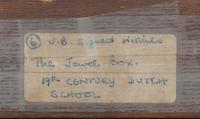 ⑥ J.B. Signed initials
The Jewel Box.
19th CENTURY DUTCH
SCHOOL